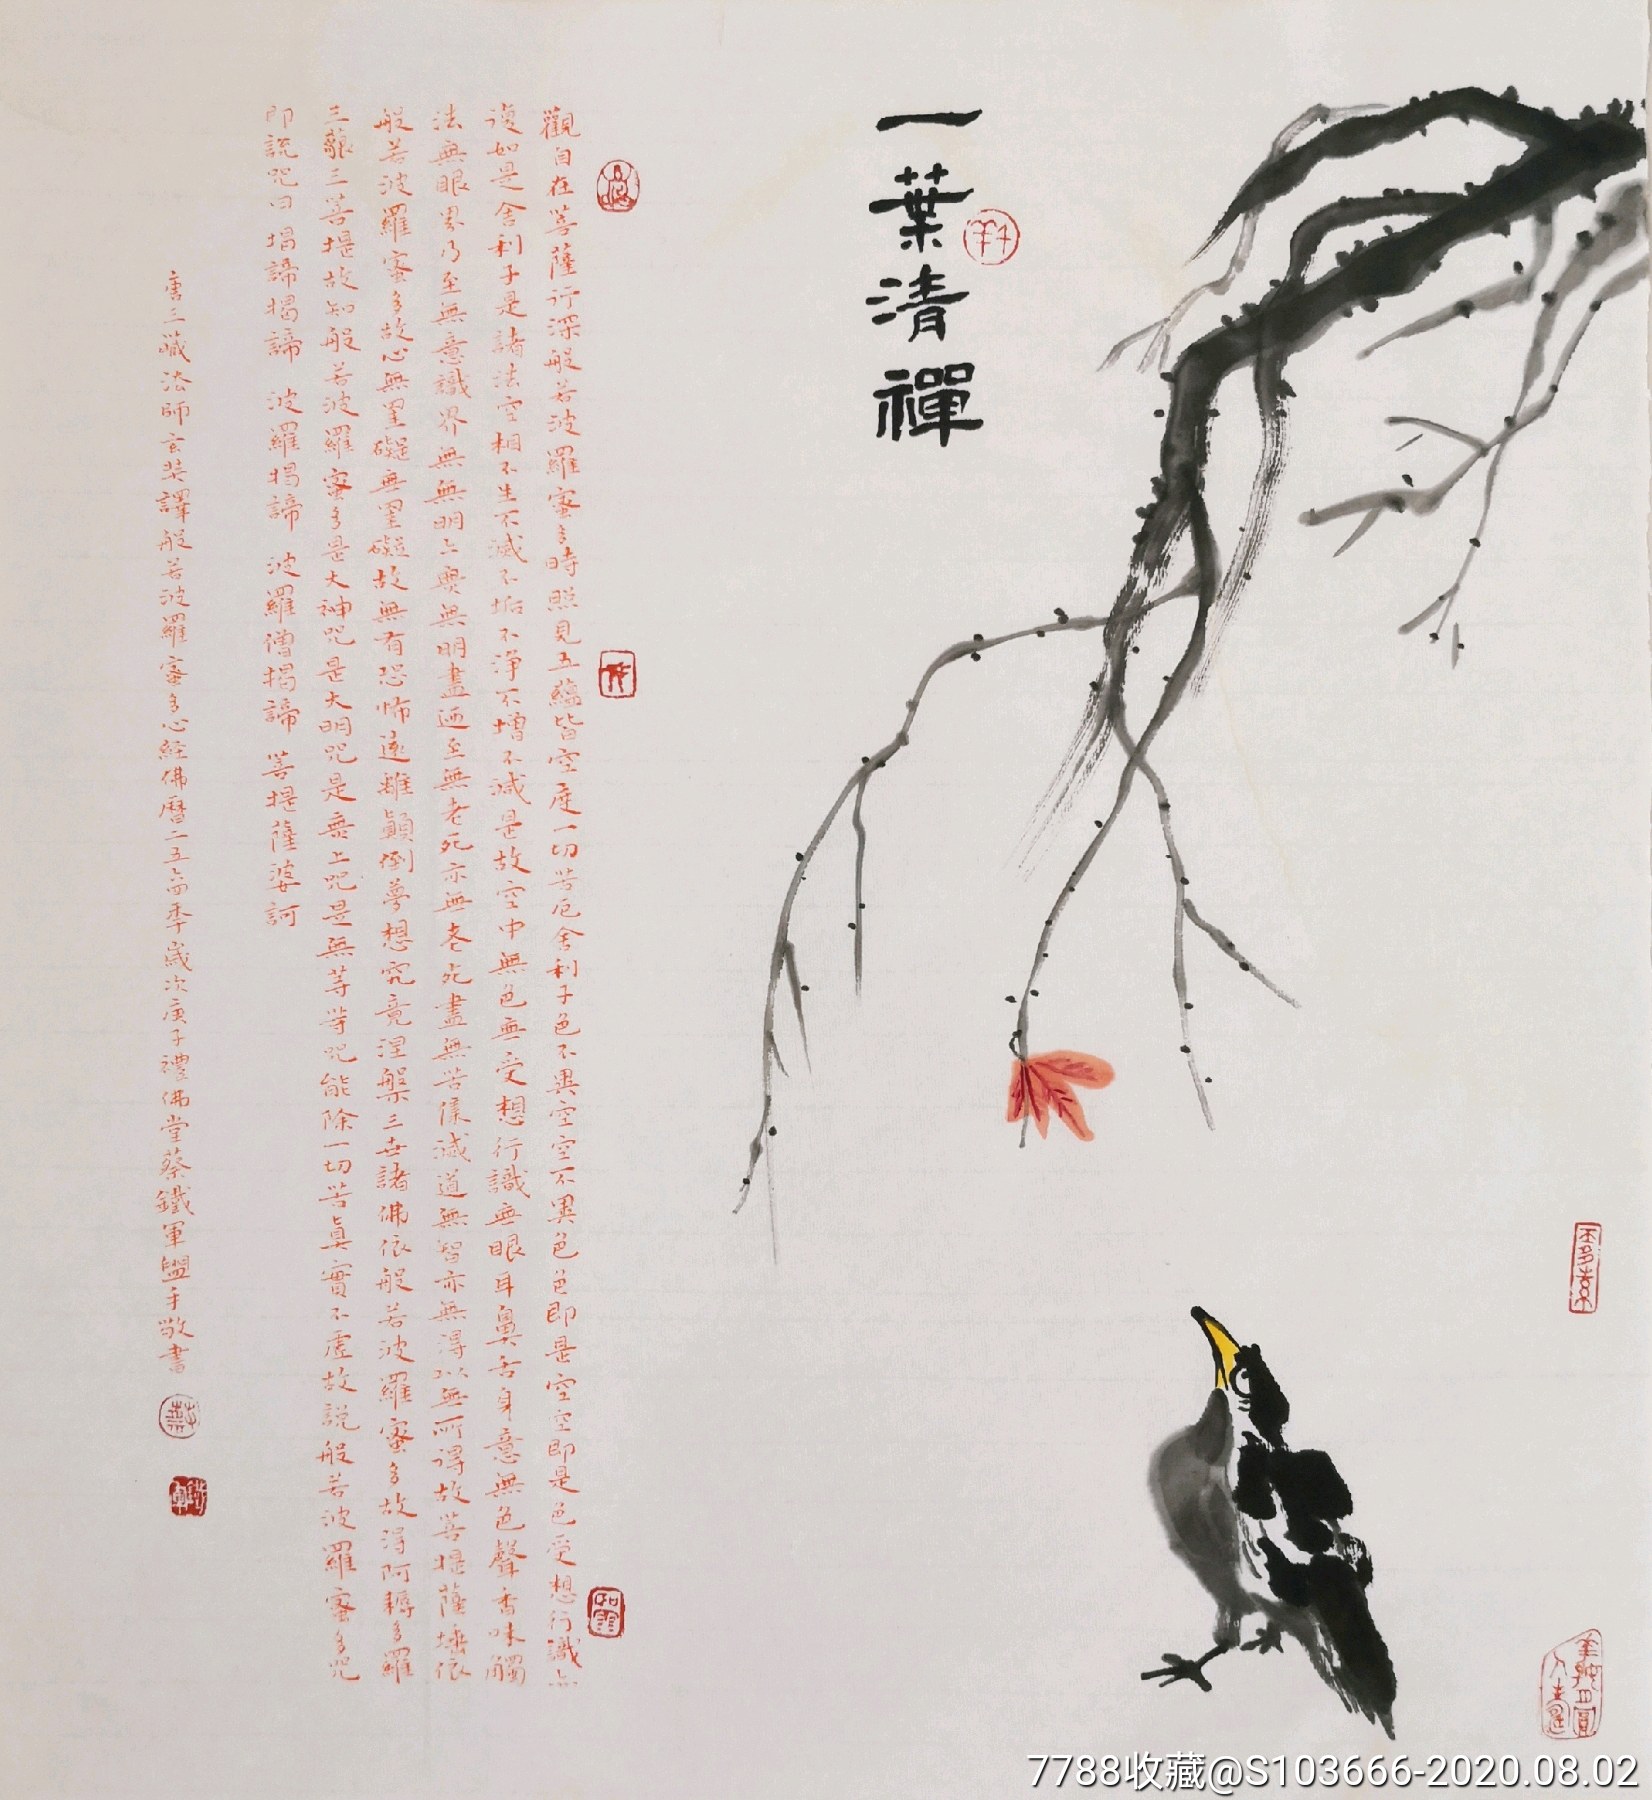 一葉清禪
觀自在菩薩行深般若波羅蜜多時照見五蘊皆空度一切苦厄舍利子色不異空空不異色色即是空空即是色受想行識亦
復如是舍利子是諸法空相不生不滅不垢不淨不增不減是故空中無色無受想行識無眼耳鼻舌身意無色聲香味觸
法無眼界乃至無意識界無無明亦無無明盡迺至無老死亦無老死盡無苦集滅道無智亦無得以無所得故菩提薩埵依
般若波羅蜜多故心無罣礙無罣礙故無有恐怖遠離顛倒夢想究竟涅槃三世諸佛依般若波羅蜜多故得阿耨多羅
三藐三菩提故知般若波羅蜜多是大神咒是大明咒是無上咒是無等等咒能除一切苦真實不虛故說般若波羅蜜多咒
即說咒曰揭諦揭諦 波羅揭諦 波羅僧揭諦 菩提薩婆訶
唐三藏法師玄奘譯般若波羅蜜多心經佛曆二五六四季歲次庚子禮佛堂蔡鐵軍盥手敬書
7788收藏@S103666-2020.08.02